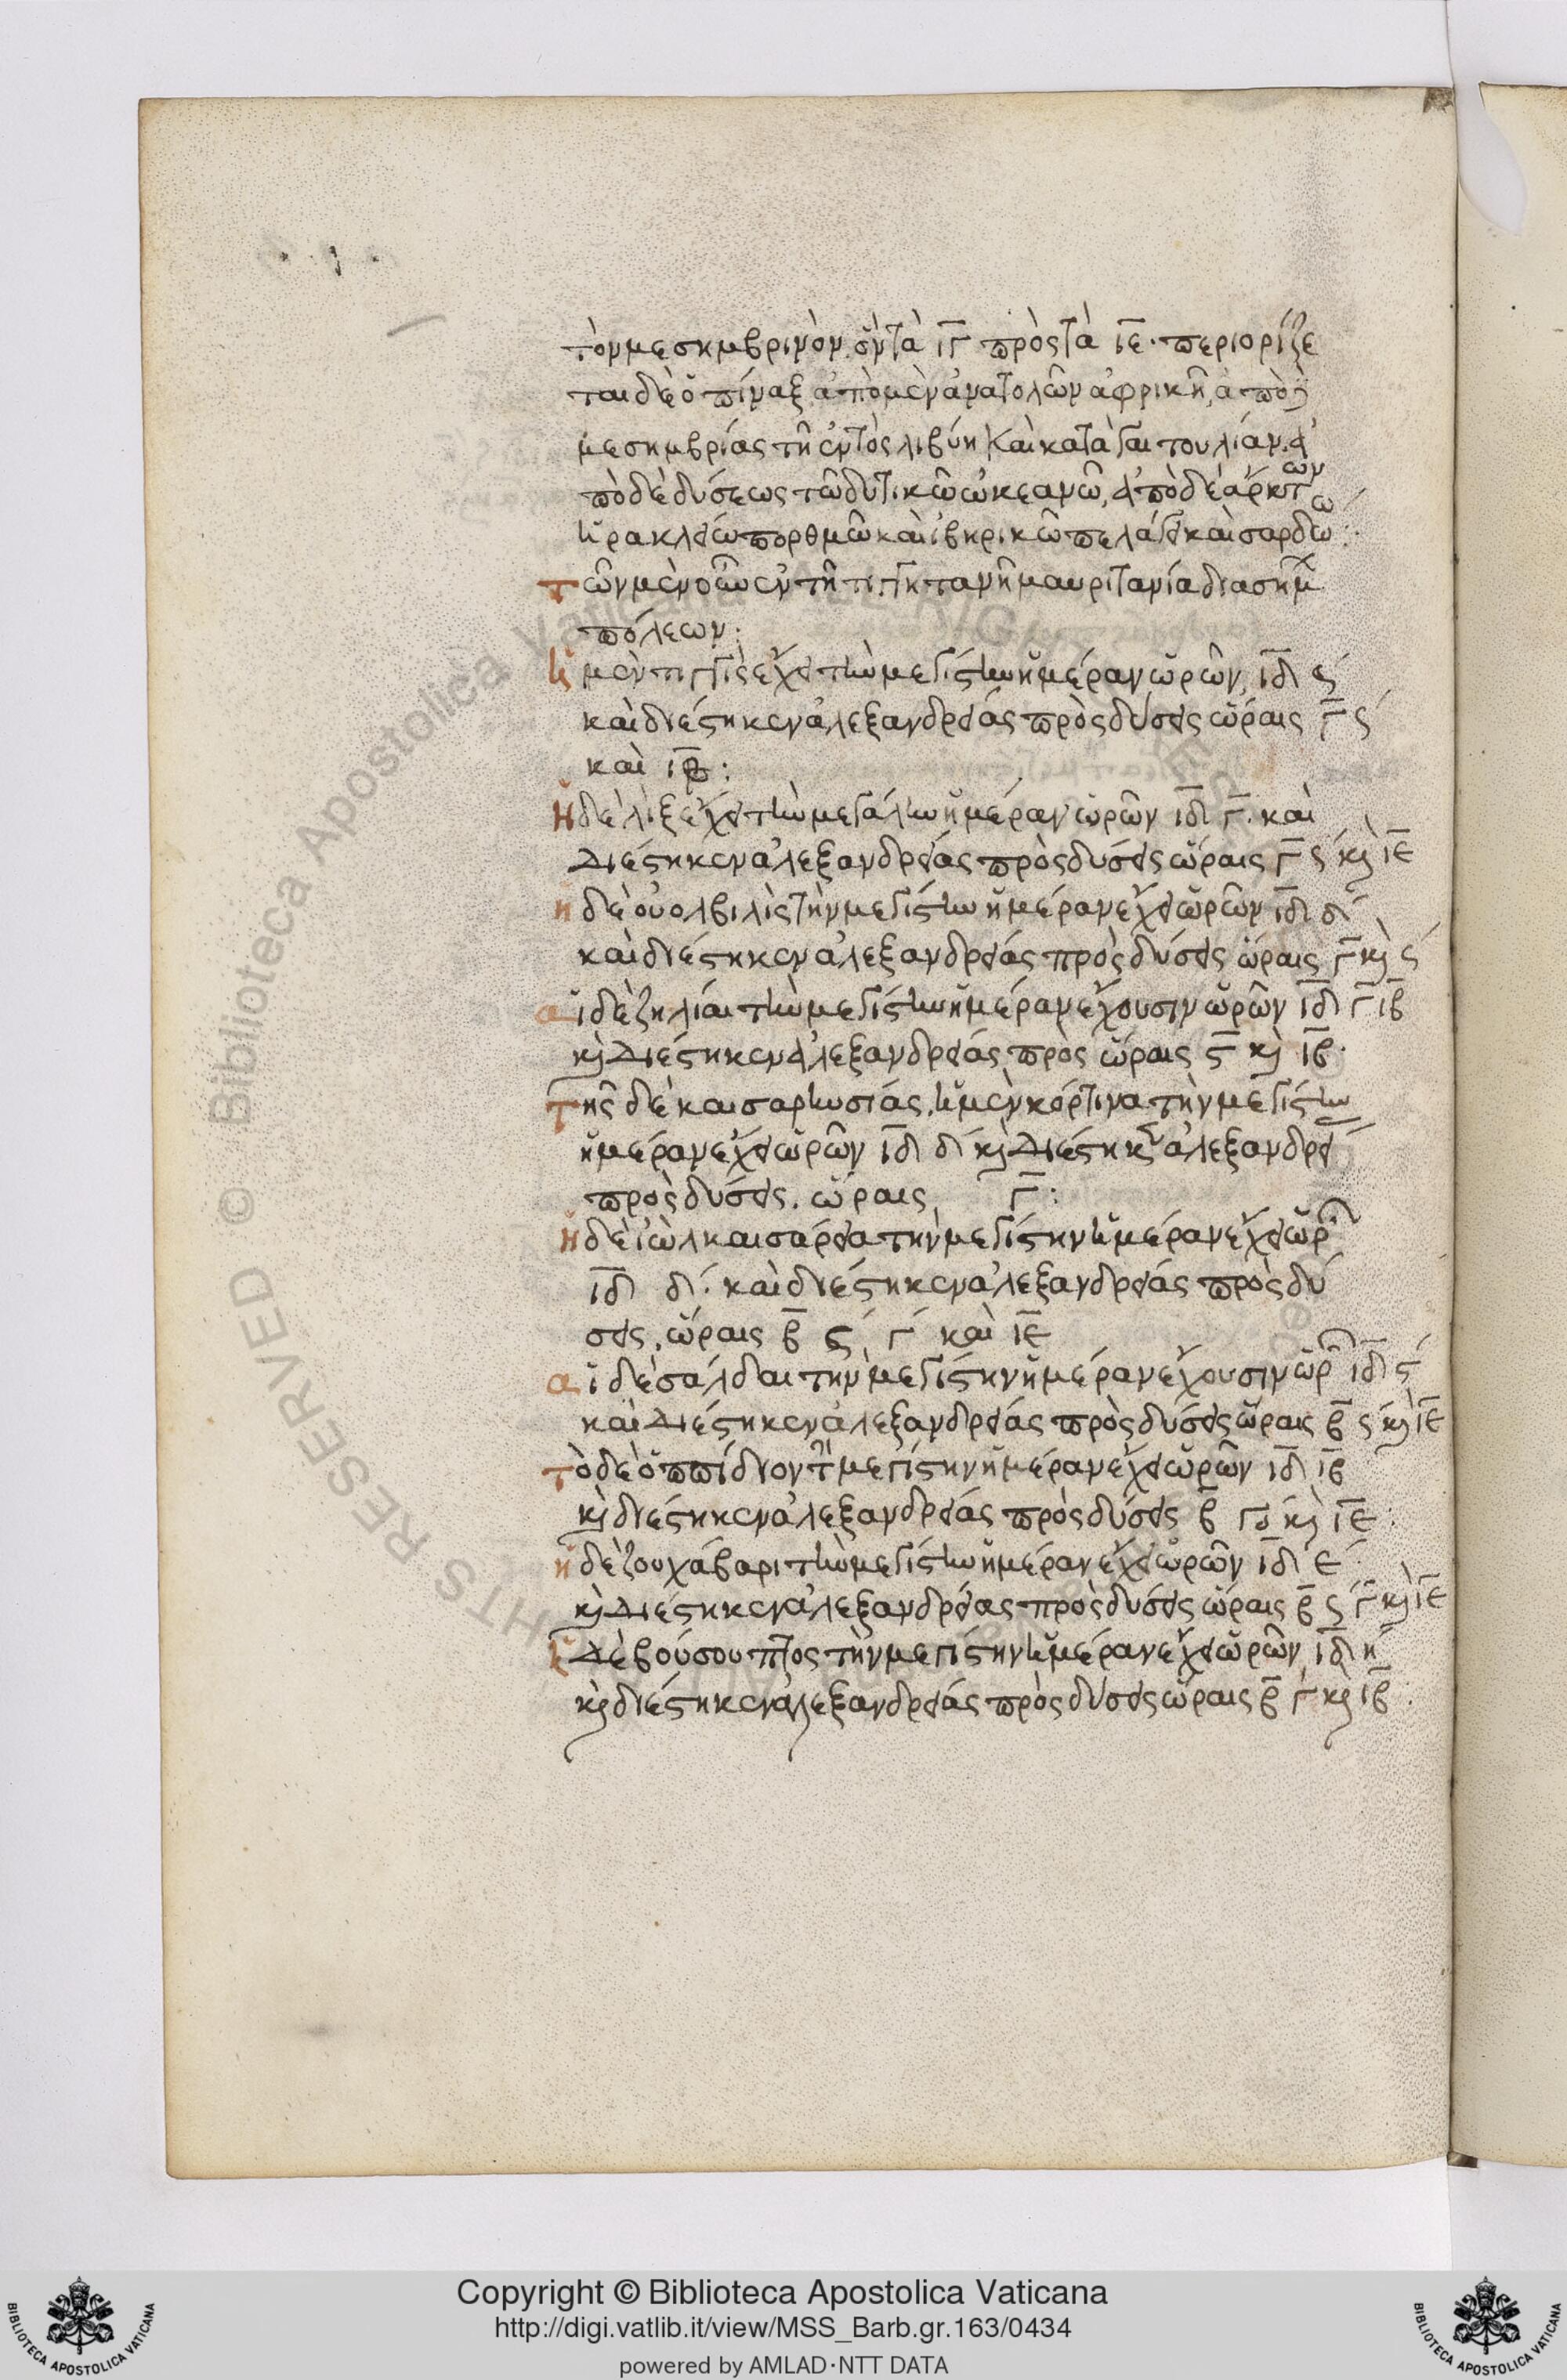 τὸν μεσημβρινὸν, ὃν τὰ ιγ πρὸς τὰ ιε· περιορίζε
ται δὲ ὁ πίναξ ἀπὸ μὲν ἀνατολῶν ἀφρικῆ, ἀπὸ δὲ
μεσημβρίας τῆ ἐντὸς λιβύη καὶ κατὰ γαιτουλίαν. ἀ
πὸ δὲ δύσεως τῶ δυτικῶ ὠκεανῶ, ἀπὸ δὲ ἄρκτων
ἡρακλείω πορθμῶ καὶ ἰβηρικῶ πελάγει καὶ σαρδώω:
τῶν μὲν οὖν ἐν τῆ τιγγητανῆ μαυριτανία διασήμ
πόλεων:
ἡ μὲν τιγγὶς ἔχει τὴν μεγίστην ἡμέραν ὡρῶν, ιδ ς
καὶ διέστηκεν ἀλεξανδρείας πρὸς δύσεις ὥραις γ ς
καὶ ιβ:
ἡ δὲ λὶξ ἔχει τὴν μεγάλην ἡμέραν ὡρῶν ιδ γ. καὶ
διέστηκεν ἀλεξανδρείας πρὸς δύσεις ὥραις γ ς καὶ ιε
ἡ δὲ οὐολβιλὶς τὴν μεγίστην ἡμέραν ἔχει ὡρῶν ιδ δ
καὶ διέστηκεν ἀλεξανδρείας πρὸς δύσεις ὥραις γ καὶ ς
αἱ δὲ ζηλίαι τὴν μεγίστην ἡμέραν ἔχουσιν ὡρῶν ιδ γ ιβ
καὶ διέστηκεν ἀλεξανδρείας πρὸς ὥραις ς καὶ ιβ·
τῆς δὲ καισαρηνσίας, ἡ μὲν κόρτινα τὴν μεγίστην
ἡμέραν ἔχει ὡρῶν ιδ δ καὶ διέστηκεν ἀλεξανδρεί
πρὸς δύσεις. ὥραις γ:
ἡ δὲ ἰὼλ καισάρεια τὴν μεγίστην ἡμέραν ἔχει ὡρ
ιδ δ. καὶ διέστηκεν ἀλεξανδρείας πρὸς δύ
σεις, ὥραις β ς γ καὶ ιε
αἱ δὲ σάλδαι τὴν μεγίστην ἡμέραν ἔχουσιν ὡρ ιδ ς
καὶ διέστηκεν ἀλεξανδρείας πρὸς δύσεις ὥραις β ς καὶ ιε
τὸ δὲ ὀππίδιον τὴν μεγίστην ἡμέραν ἔχει ὡρῶν ιδ ιβ
καὶ διέστηκεν ἀλεξανδρείας πρὸς δύσεις β γο καὶ ιε·
ἡ δὲ ζουχάβαρι τὴν μεγίστην ἡμέραν ἔχει ὡρῶν ιδ ε
καὶ διέστηκεν ἀλεξανδρείας πρὸς δύσεις ὥραις β ς γ καὶ ιε
ἡ δὲ βούσου πτος τὴν μεγίστην ἡμέραν ἔχει ὡρῶν, ιδ η
καὶ διέστηκεν ἀλεξανδρείας πρὸς δύσεις ὥραις β γ καὶ ιβ.
Copyright © Biblioteca Apostolica Vaticana
http://digi.vatlib.it/view/MSS_Barb.gr.163/0434
powered by AMLAD·NTT DATA